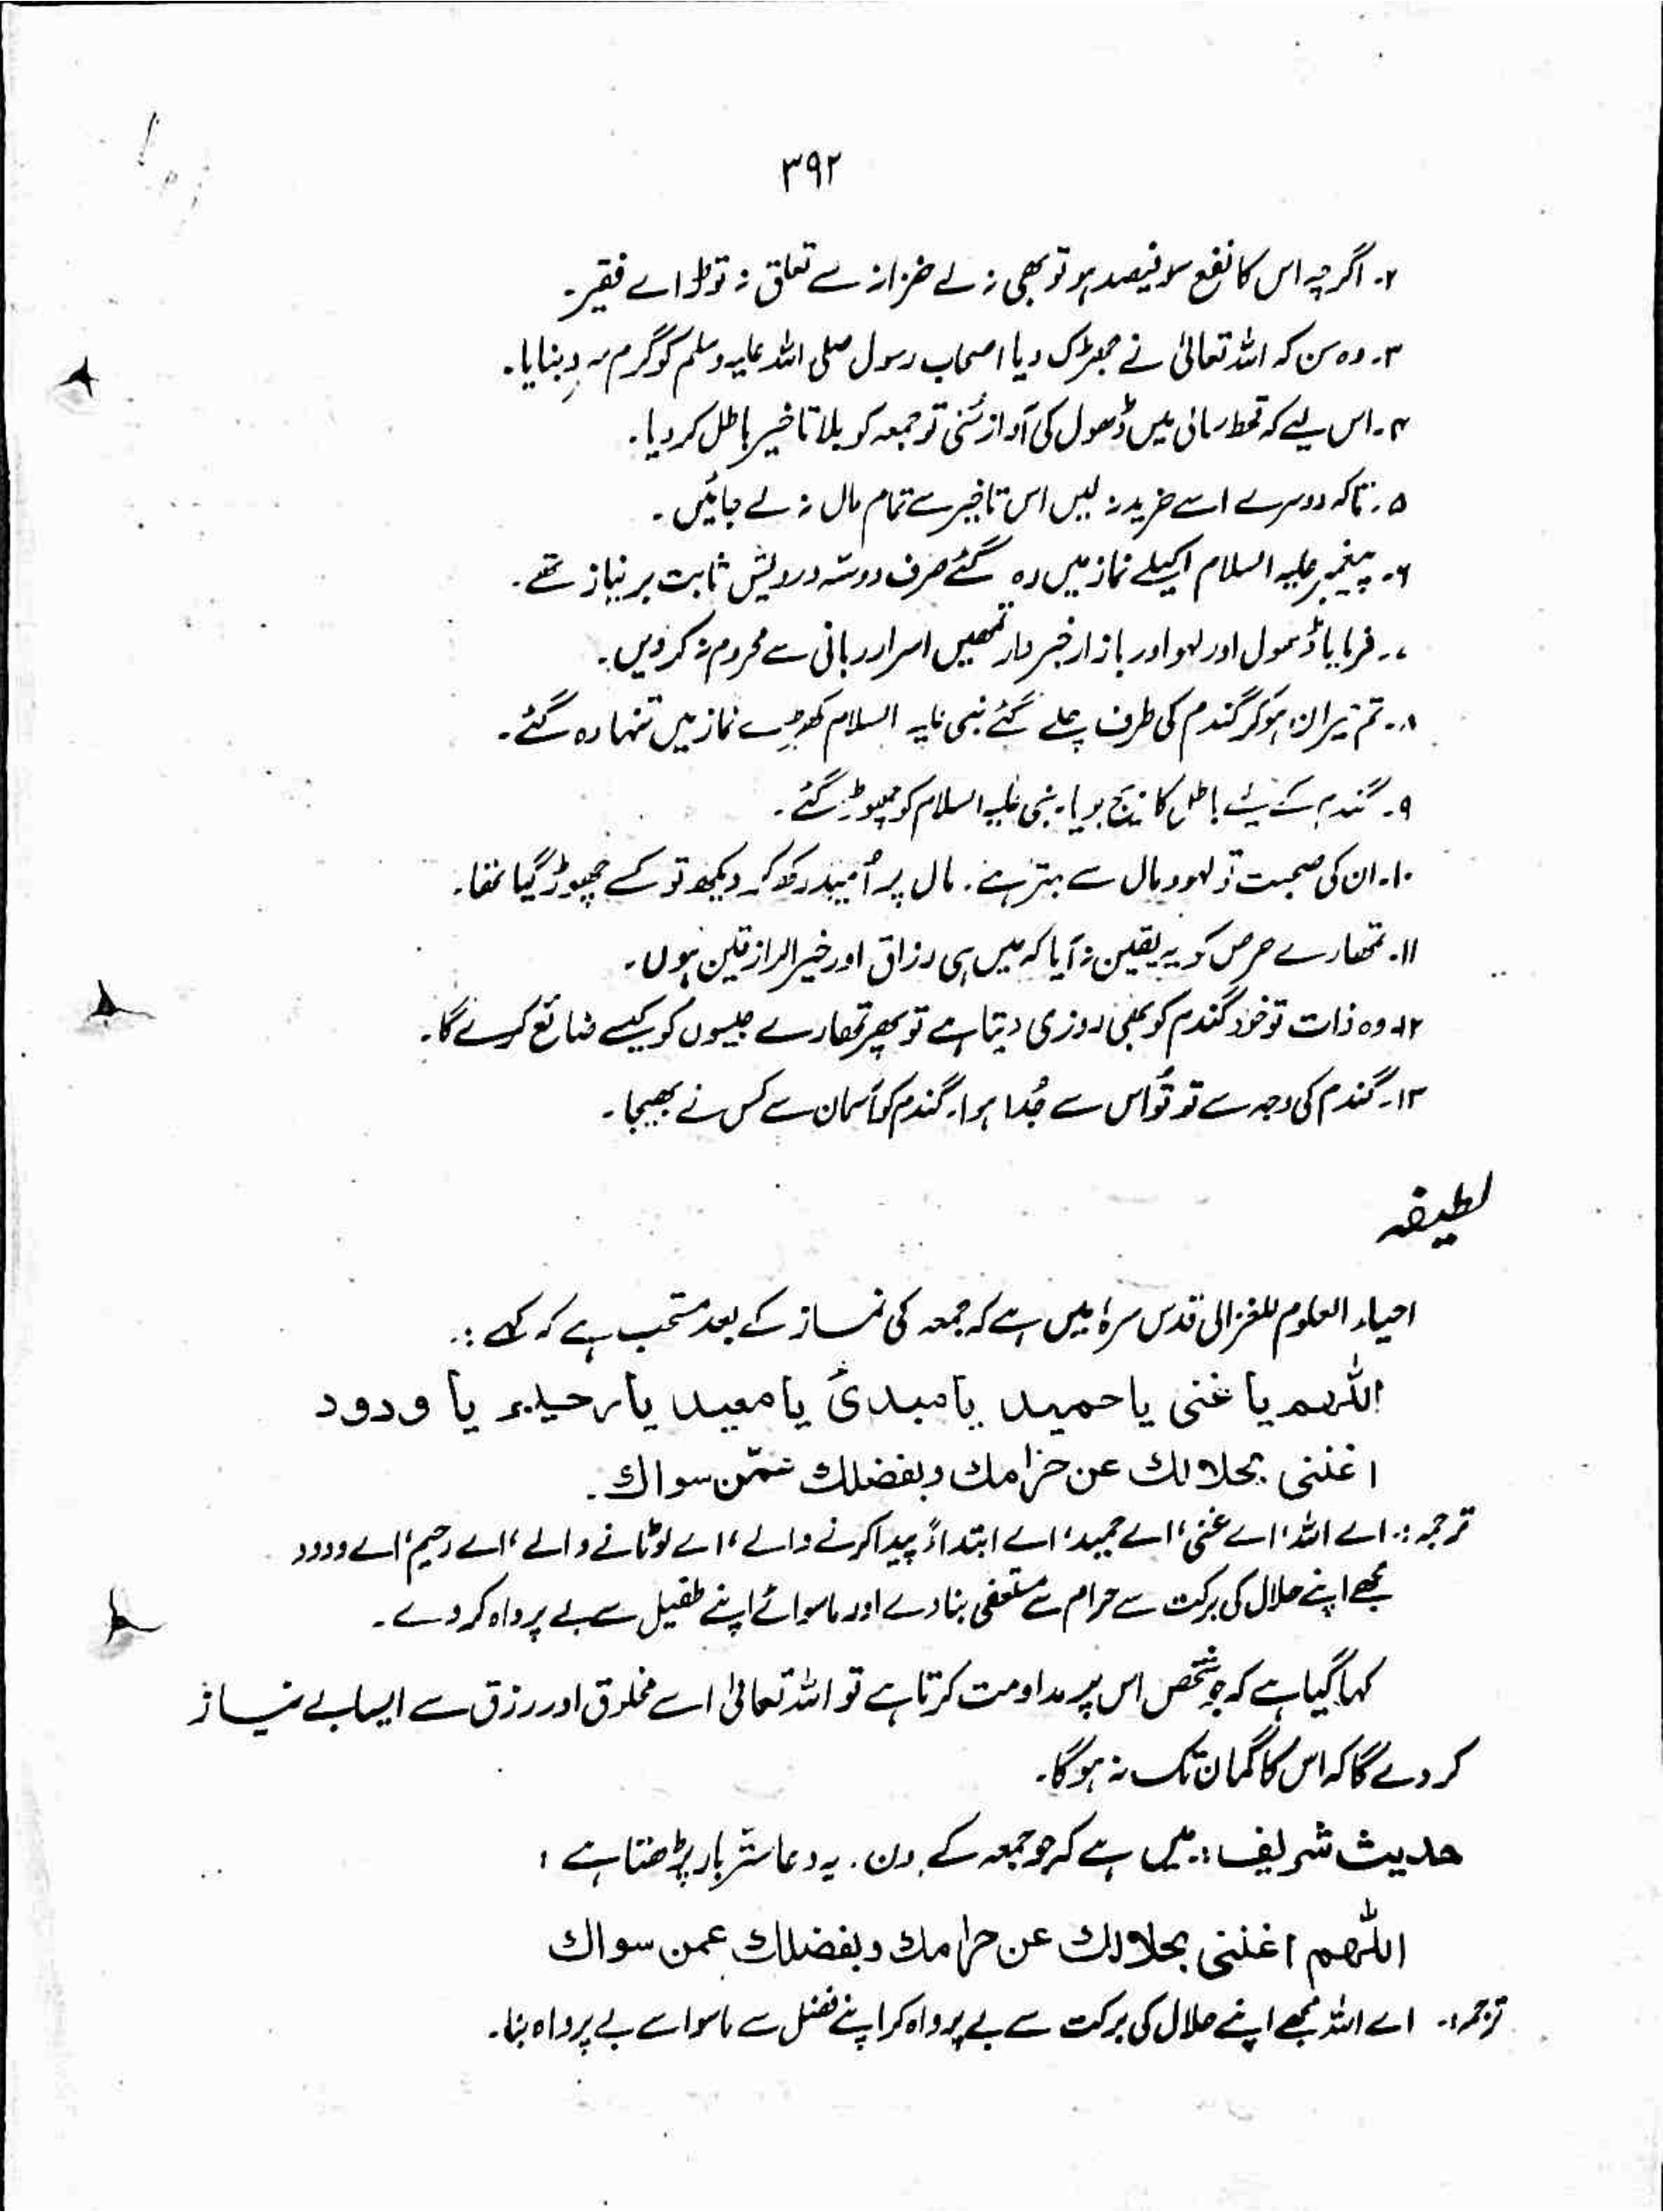 ۳۹۲
۲۔ اگرچہ اس کا نفع سو فیصد ہو تو بھی نہ لے خزانہ سے تعلق نہ توڑ اے فقیر۔
۳۔ وہ سن کہ اللہ تعالیٰ نے جھڑک دیا اصحاب رسول صلی اللہ علیہ وسلم کو گرم سرد بنایا۔
۴۔ اس لیے کہ قحط سالی میں ڈھول کی آواز سُنی تو جمعہ کو بلا تاخیر باطل کر دیا۔
۵۔ تاکہ دوسرے اسے خرید نہ لیں اس تاخیر سے تمام مال نہ لے جائیں۔
۶۔ پیغمبر علیہ السلام اکیلے نماز میں رہ گئے صرف دوسہ درویش ثابت بر نیاز تھے۔
۷۔ فرمایا ڈھول اور لہو اور بازار خبردار تمھیں اسرار ربانی سے محروم نہ کر دیں۔
۸۔ تم حیران ہو کر گندم کی طرف چلے گئے نبی علیہ السلام کھڑے نماز میں تنہا رہ گئے۔
۹۔ گندم کے لیے باطل کا بیج بویا۔ نبی علیہ السلام کو چھوڑ گئے۔
۱۰۔ ان کی صحبت تو لہو و مال سے بہتر ہے۔ مال پر اُمید رکھ کر دیکھ تو کسے چھوڑ گیا تھا۔
۱۱۔ تمھارے حرص کو یہ یقین نہ آیا کہ میں ہی رزاق اور خیر الرازقین ہوں۔
۱۲۔ وہ ذات تو خود گندم کو بھی روزی دیتا ہے تو پھر تمھارے جیسوں کو کیسے ضائع کرے گا۔
۱۳۔ گندم کی وجہ سے تو تُو اس سے جُدا ہوا۔ گندم کو آسمان سے کس نے بھیجا۔
لطیفہ
احیاء العلوم للغزالی قدس سرہٗ میں ہے کہ جمعہ کی نماز کے بعد مستحب ہے کہ کہے :۔
اللّٰهم یا غنی یا حمید یا مبدئ یا معید یا رحیم یا ودود
اغننی بحلالك عن حرامك وبفضلك عمّن سواك۔
ترجمہ :۔ اے اللہ، اے غنی، اے حمید، اے ابتداءً پیدا کرنے والے، اے لوٹانے والے، اے رحیم، اے ودود
مجھے اپنے حلال کی برکت سے حرام سے مستغنی بنا دے اور ماسوائے اپنے طفیل سے بے پرواہ کر دے۔
کہا گیا ہے کہ جو شخص اس پر مداومت کرتا ہے تو اللہ تعالیٰ اسے مخلوق اور رزق سے ایسا بے نیاز
کر دے گا کہ اس کا گمان تک نہ ہوگا۔
حدیث شریف :۔ میں ہے کہ جو جمعہ کے دن۔ یہ دعا ستّر بار پڑھتا ہے :
اللّٰهم اغننی بحلالك عن حرامك وبفضلك عمن سواك
ترجمہ :۔ اے اللہ مجھے اپنے حلال کی برکت سے بے پرواہ کر اپنے فضل سے ماسوا سے بے پرواہ بنا۔